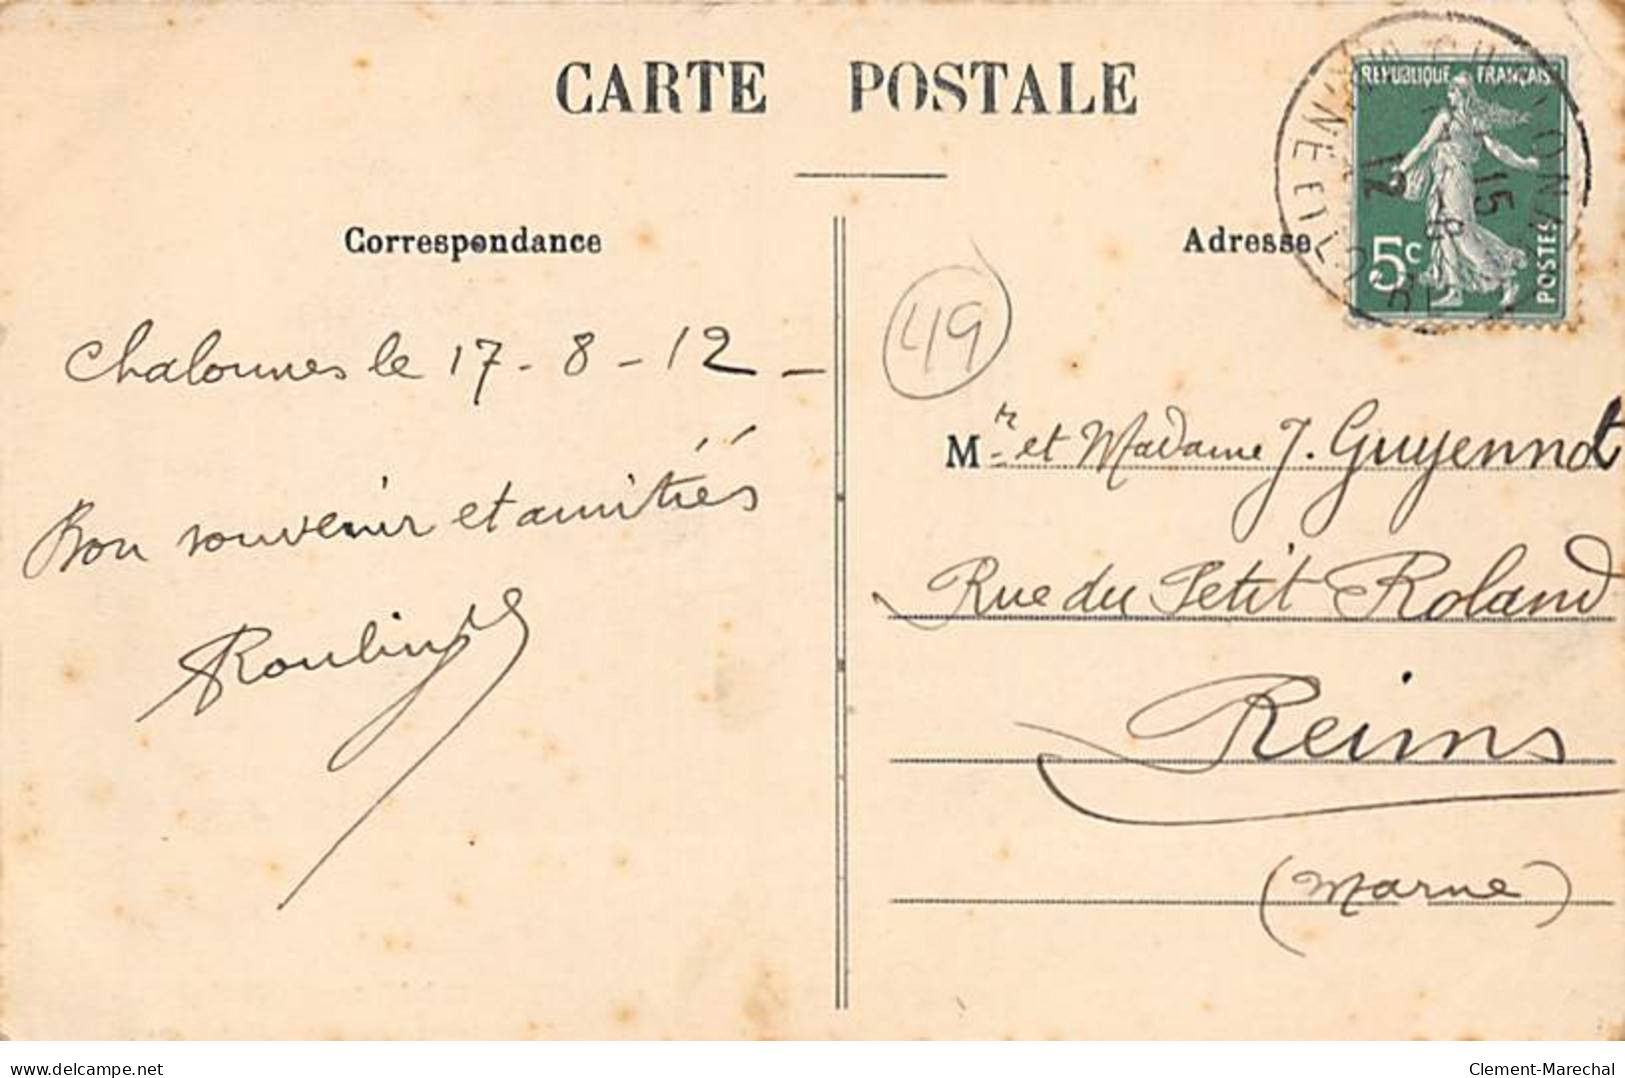 CARTE POSTALE
Correspondance
Chalonnes le 17-8-12-
Bon souvenir et amitiés
Roulin
Adresse
RÉPUBLIQUE FRANÇAISE
5c
POSTES
15
-8
12
49
Mr et Madame J. Guyennot
Rue du Petit Roland
Reims
(Marne)
www.delcampe.net
Clement-Marechal